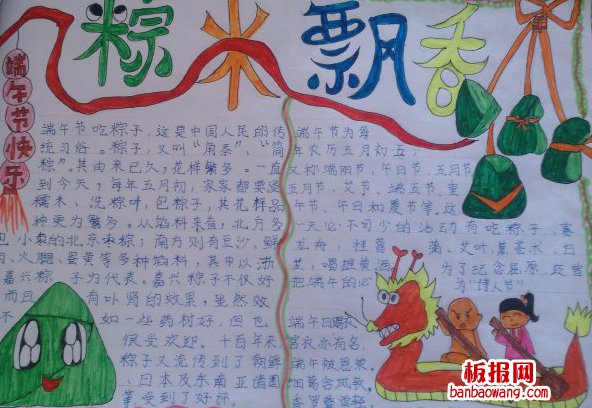 粽米飘香
端午节快乐
端午节吃粽子，这是中国人民的传
统习俗。粽子，又叫“角黍”、“筒
粽”。其由来已久，花样繁多。一直
到今天，每年五月初，家家都要浸
糯米、洗粽叶，包粽子，其花样品
种更为繁多。从馅料来看，北方多
包小枣的北京枣粽；南方则有豆沙、鲜
肉、火腿、蛋黄等多种馅料，其中以浙
嘉兴粽子为代表。嘉兴粽子不仅好
而且 有补肾的效果，虽然效
不 如一些药材好，但也
很受欢迎。千百年来
粽子又流传到了朝鲜
、日本及东南亚诸国
等受到了好评
端午节为每
年农历五月初五，
又称端阳节、午日节、五月节
五月节、艾节、端五节、重
午节、午日和夏节等，这
一天必不可少的活动有吃粽子、赛
龙舟，挂菖蒲、艾叶，薰苍术、白
芷，喝雄黄酒。
把端午的心
为了纪念屈原，还曾
为“诗人节”
端午日
宫衣亦有名，
端午被恩荣。
细葛含风软，
香罗叠雪轻
板报网
banbaowang.com